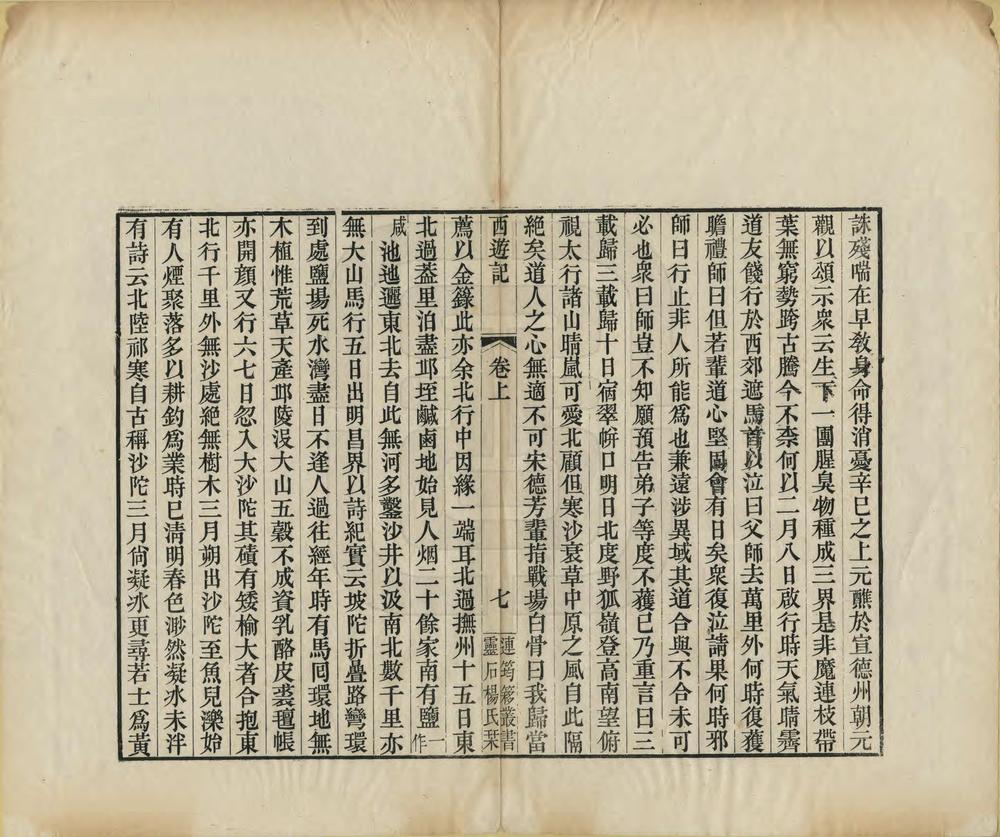 誅殘喘在早教身命得消憂辛巳之上元醮於宣德州朝元
觀以頌示衆云生下一團腥臭物種成三界是非魔連枝帶
葉無窮勢跨古騰今不柰何以二月八日啟行時天氣晴霽
道友餞行於西郊遮馬首以泣曰父師去萬里外何時復獲
瞻禮師曰但若輩道心堅固會有日矣衆復泣請果何時邪
師曰行止非人所能爲也兼遠涉異域其道合與不合未可
必也衆曰師豈不知願預告弟子等度不獲已乃重言曰三
載歸三載歸十日宿翠帡口明日北度野狐嶺登高南望俯
視太行諸山晴嵐可愛北顧但寒沙衰草中原之風自此隔
絕矣道人之心無適不可宋德芳輩指戰場白骨曰我歸當
西遊記 卷上 七 連筠簃叢書
靈石楊氏栞
薦以金籙此亦余北行中因緣一端耳北過撫州十五日東
北過蓋里泊盡邱垤鹹鹵地始見人烟二十餘家南有鹽一作
咸池迤邐東北去自此無河多鑿沙井以汲南北數千里亦
無大山馬行五日出明昌界以詩紀實云坡陀折疊路彎環
到處鹽場死水灣盡日不逢人過往經年時有馬囘環地無
木植惟荒草天產邱陵沒大山五穀不成資乳酪皮裘氊帳
亦開顏又行六七日忽入大沙陀其磧有矮榆大者合抱東
北行千里外無沙處絕無樹木三月朔出沙陀至魚兒濼始
有人煙聚落多以耕釣爲業時已清明春色渺然凝冰未泮
有詩云北陸祁寒自古稱沙陀三月尙凝冰更尋若士爲黃